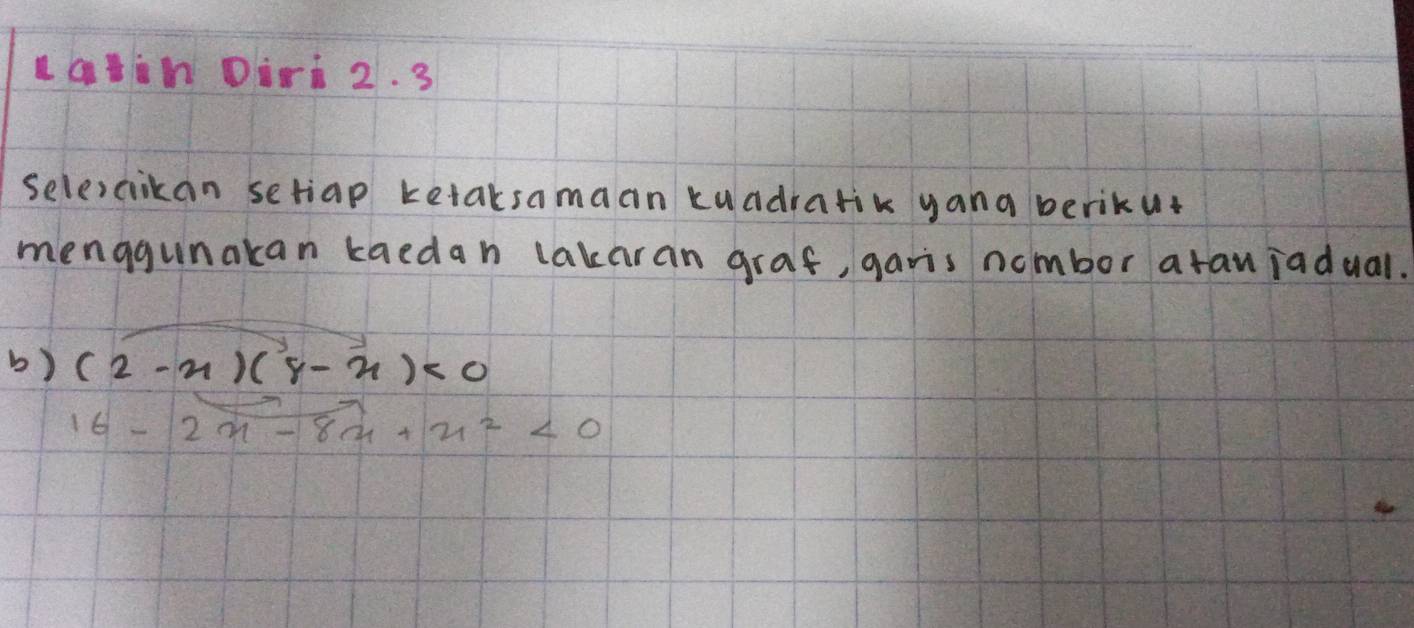 Latih Diri 2.3
Selesaikan setiap ketaksamaan kuadratik yang berikut
menggunakan kaedah lakaran graf, garis nombor atau jadual.
b) (2 - x)(8 - x) < 0
16 - 2x - 8x + x² < 0